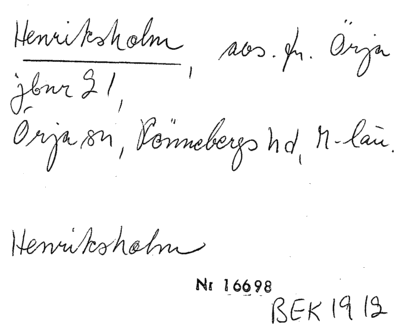 Henriksholm, avs. fr. Örja
jbnr 21,
Örja sn, Rönnebergs hd, M-län.
Henriksholm
Nr 16698
BEK 1912